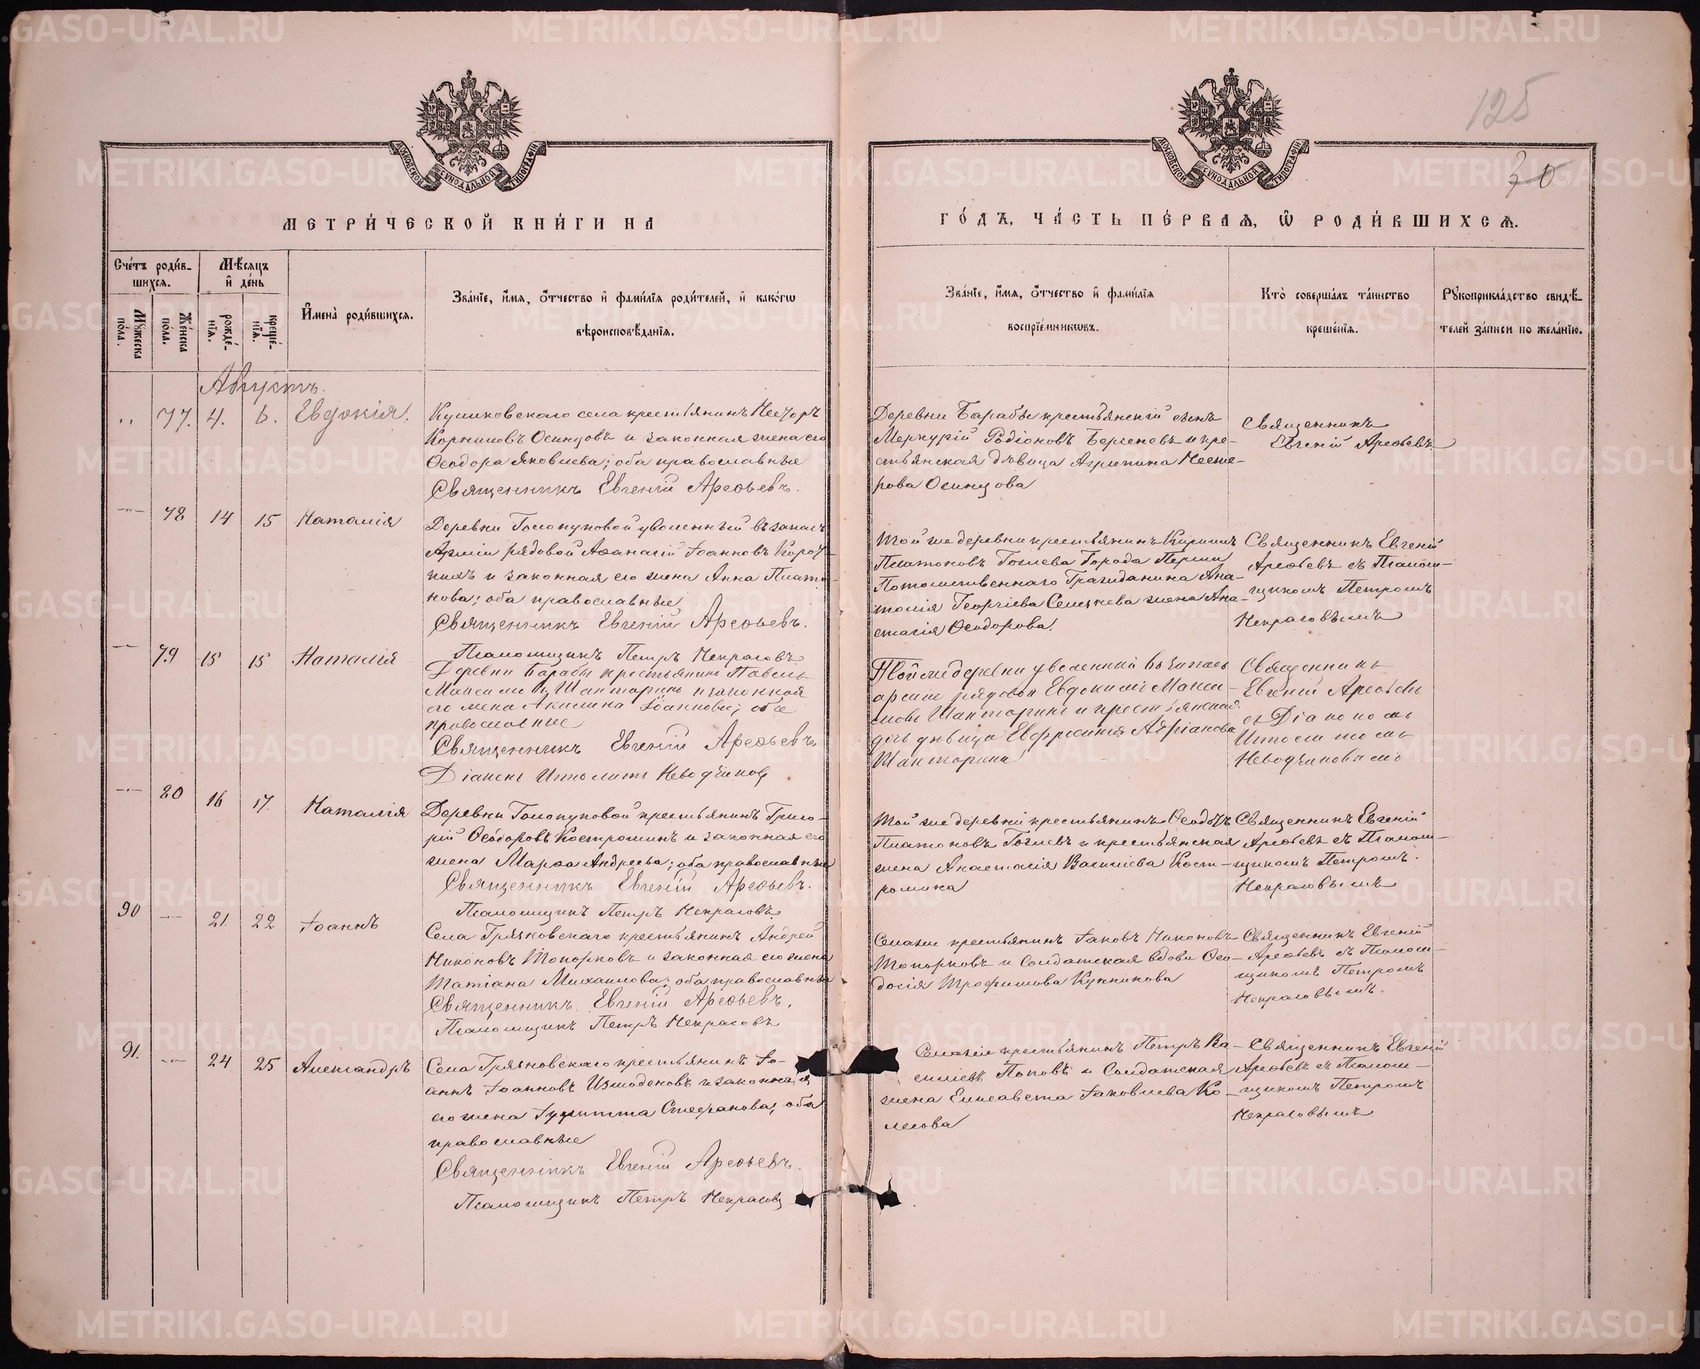 125
30
МОСКОВСКОЙ СѴНОДАЛЬНОЙ ТИПОГРАФІИ
МОСКОВСКОЙ СѴНОДАЛЬНОЙ ТИПОГРАФІИ
МЕТРИ́ЧЕСКОЙ КНИ́ГИ НА
ГО́ДЪ, ЧА́СТЬ ПЕ́РВАЯ, Ѽ РОДИ́ВШИХСЯ.
Сче́тъ роди́в-
шихся.
Мѣ́сяцъ
и҆ де́нь
Мꙋ́жеска по́ла.
Же́нска по́ла.
рожде́-
нїя.
креще́-
нїя.
И҆мена̀ роди́вшихся.
Зва́нїе, и҆́мя, ѻ҆́тчество и҆ фами́лїя роди́телей, и҆ како́гѡ
вѣроисповѣ́данїя.
Зва́нїе, и҆́мя, ѻ҆́тчество и҆ фами́лїя
воспрїе́мникѡвъ.
Кто̀ соверша́лъ та́инство
креще́нїя.
Рꙋкоприкла́дство свидѣ́-
телей за́писи по жела́нїю.
Августъ.
" 77. 4. 6. Евдокія.
Куликовскаго села крестьянинъ Несторъ
Корниловъ Осинцовъ и законная жена его
Ѳеодора Яковлева; оба православные
Священникъ Евгеній Арефьевъ.
Деревни Барабы крестьянскій сынъ
Меркурій Родіоновъ Бергеневъ и кре-
стьянская дѣвица Агрипина Несте-
рова Осинцова
Священникъ
Евгеній Арефьевъ
-"- 78 14 15 Наталія
Деревни Голопуповой уволенный въ запасъ
Арміи рядовой Аѳанасій Іоанновъ Корот-
кихъ и законная его жена Анна Плато-
нова; оба православные
Священникъ Евгеній Арефьевъ.
Псаломщикъ Петръ Некрасовъ
Той же деревни крестьянинъ Кириллъ
Платоновъ Гоглева Города Перми
Потомственнаго Гражданина Ана-
толія Георгіева Селезнева жена Ана-
стасія Ѳеодорова.
Священникъ Евгеній
Арефьевъ съ Псалом-
щикомъ Петромъ
Некрасовымъ
79 15 15 Наталія
Деревни Барабы крестьянинъ Павелъ
Максимовъ Шанторинъ и законная
его жена Акилина Іоаннова; оба
православные
Священникъ Евгеній Арефьевъ
Діаконъ Ипполитъ Неводчиковъ
Той же деревни уволенный въ запасъ
арміи рядовой Евдокимъ Макси-
мовъ Шанторинъ и крестьянская
дочь дѣвица Евфросинія Адріанова
Шанторина
Священникъ
Евгеній Арефьевъ
съ Діакономъ
Ипполитомъ
Неводчиковымъ
-"- 80 16 17. Наталія
Деревни Голопуповой крестьянинъ Григо-
рій Ѳеодоровъ Костроминъ и законная его
жена Марѳа Андреева; оба православные
Священникъ Евгеній Арефьевъ.
Псаломщикъ Петръ Некрасовъ
Той же деревни крестьянинъ Ѳеодоръ
Платоновъ Гоглевъ и крестьянская
жена Анастасія Василіева Кост-
ромина
Священникъ Евгеній
Арефьевъ съ Псалом-
щикомъ Петромъ.
Некрасовымъ
90 21. 22 Іоаннъ
Села Грязновскаго крестьянинъ Андрей
Никоновъ Топорковъ и законная его жена
Татіана Михаилова; оба православные
Священникъ Евгеній Арефьевъ.
Псаломщикъ Петръ Некрасовъ
Села же крестьянинъ Іаковъ Никоновъ
Топорковъ и Солдатская вдова Ѳео-
досія Трофимова Купникова
Священникъ Евгеній
Арефьевъ съ Псалом-
щикомъ Петромъ
Некрасовымъ.
91. 24 25 Александръ
Села Грязновскаго крестьянинъ Іо-
аннъ Іоанновъ Измоденовъ и законная
его жена Іулитта Стефанова, оба
православные
Священникъ Евгеній Арефьевъ.
Псаломщикъ Петръ Некрасовъ
Села же крестьянинъ Петръ Ва-
силіевъ Поповъ и Солдатская
жена Елисавета Іаковлева Ко-
лесова
Священникъ Евгеній
Арефьевъ съ Псалом-
щикомъ Петромъ
Некрасовымъ
METRIKI.GASO-URAL.RU